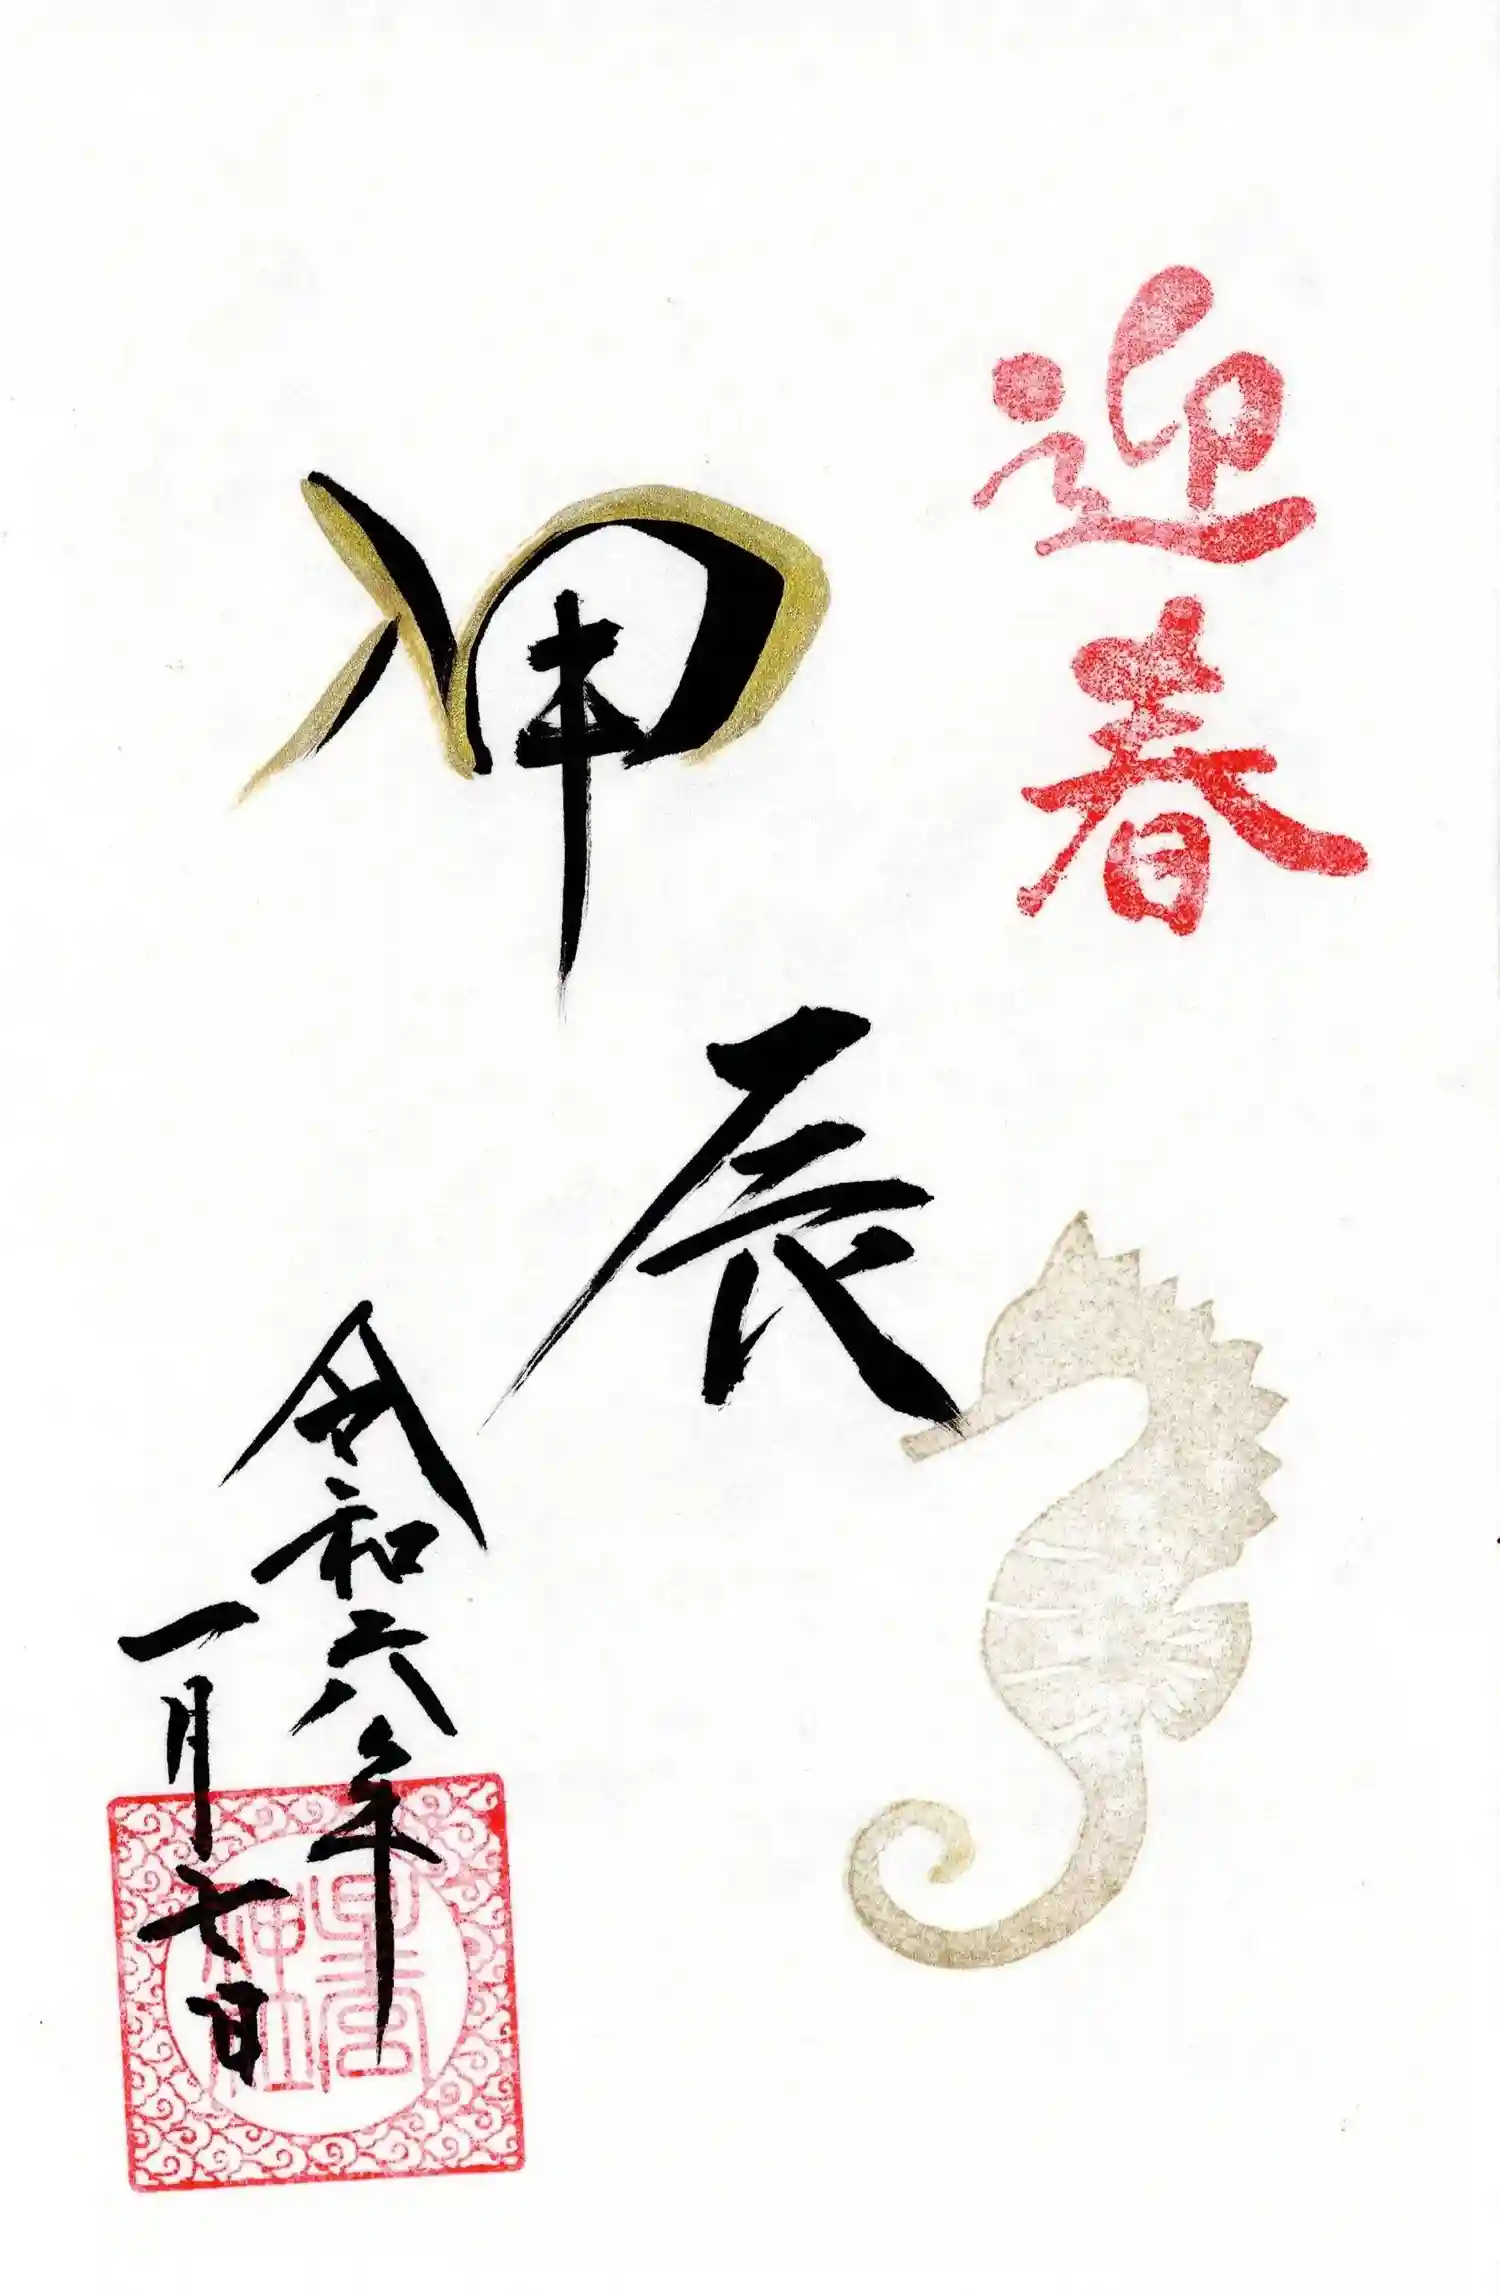 迎春
甲辰
令和六年
一月七日